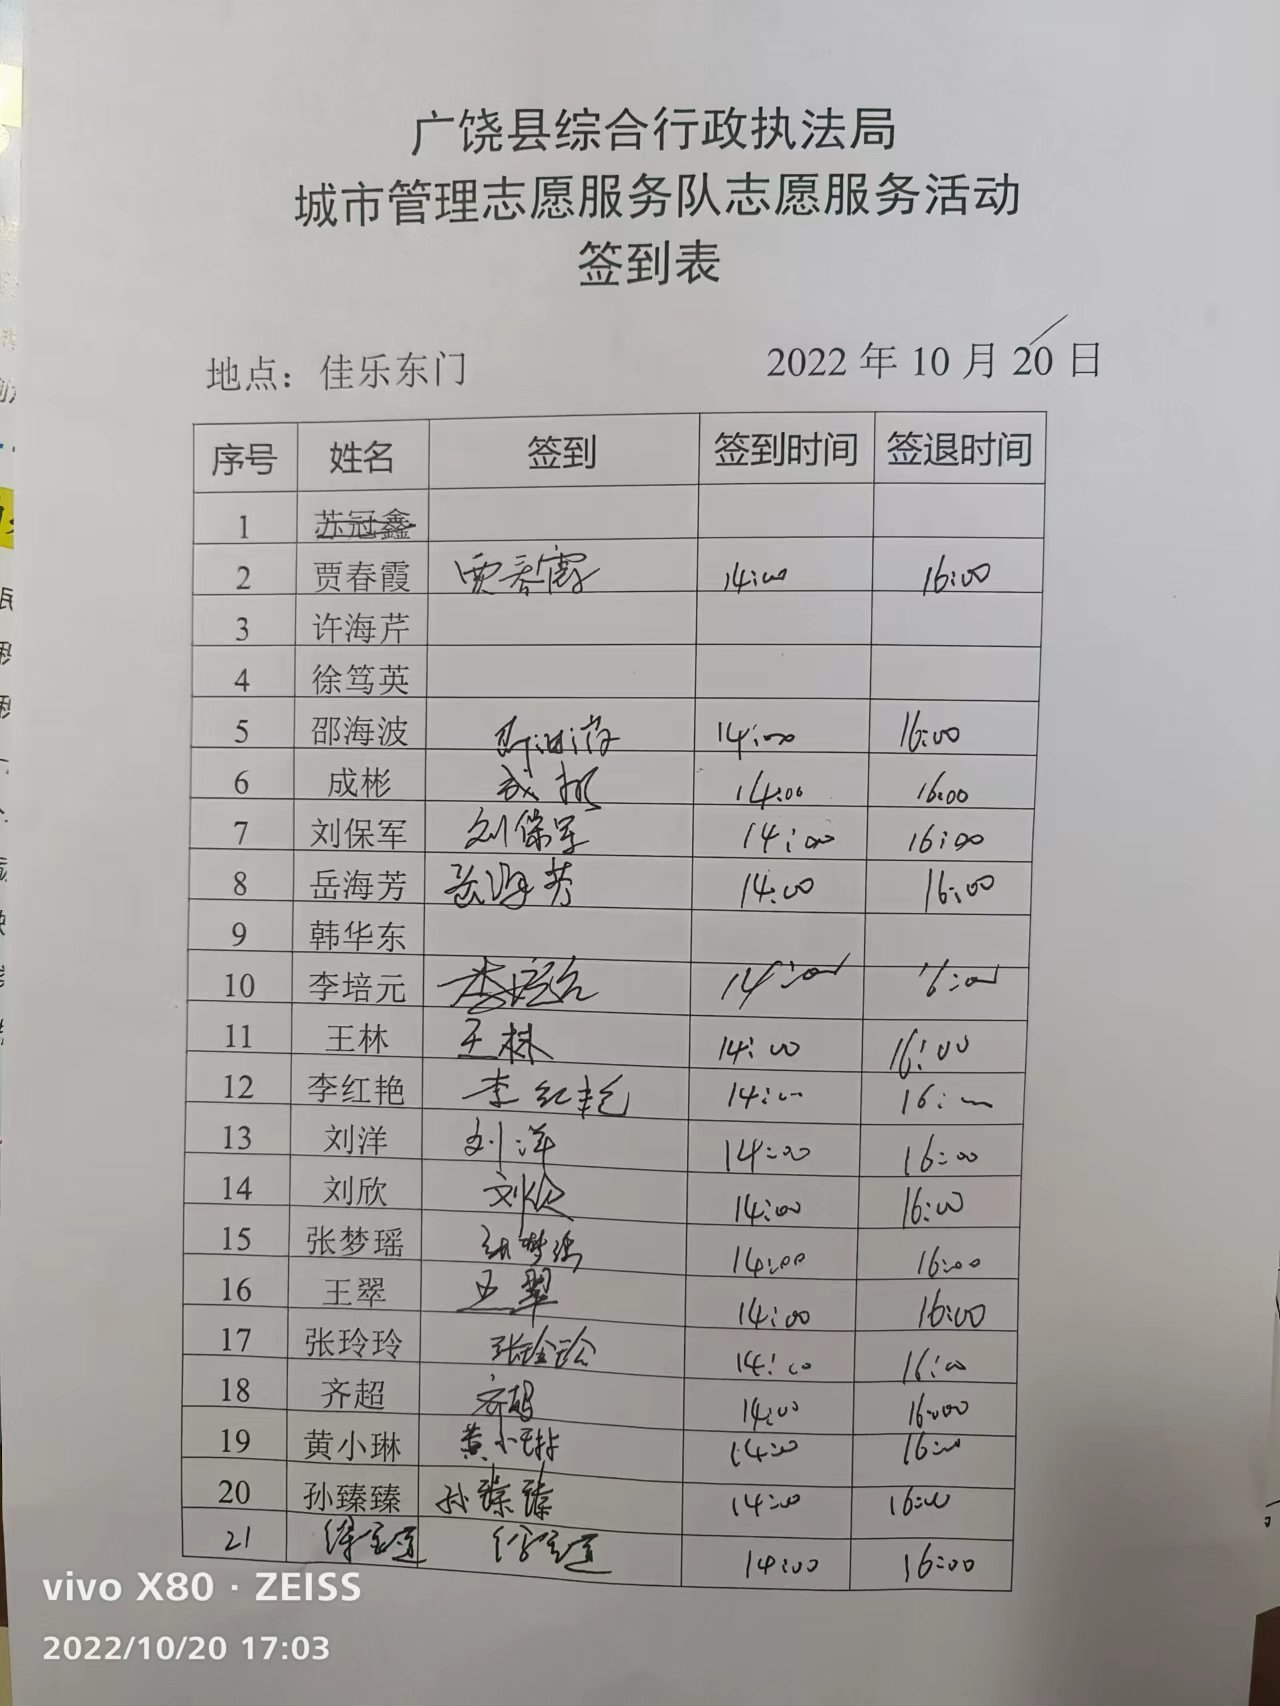 广饶县综合行政执法局
城市管理志愿服务队志愿服务活动
签到表
地点：佳乐东门 2022 年 10 月 20 日
序号 姓名 签到 签到时间 签退时间
1 苏冠鑫
2 贾春霞 贾春霞 14:00 16:00
3 许海芹
4 徐笃英
5 邵海波 14:00 16:00
6 成彬 成彬 14:00 16:00
7 刘保军 刘保军 14:00 16:00
8 岳海芳 岳海芳 14:00 16:00
9 韩华东
10 李培元 李培元 14:00 16:00
11 王林 王林 14:00 16:00
12 李红艳 李红艳 14:00 16:00
13 刘洋 刘洋 14:00 16:00
14 刘欣 刘欣 14:00 16:00
15 张梦瑶 张梦瑶 14:00 16:00
16 王翠 王翠 14:00 16:00
17 张玲玲 张玲玲 14:00 16:00
18 齐超 齐超 14:00 16:00
19 黄小琳 黄小琳 14:00 16:00
20 孙臻臻 孙臻臻 14:00 16:00
21 14:00 16:00
vivo X80 · ZEISS
2022/10/20 17:03